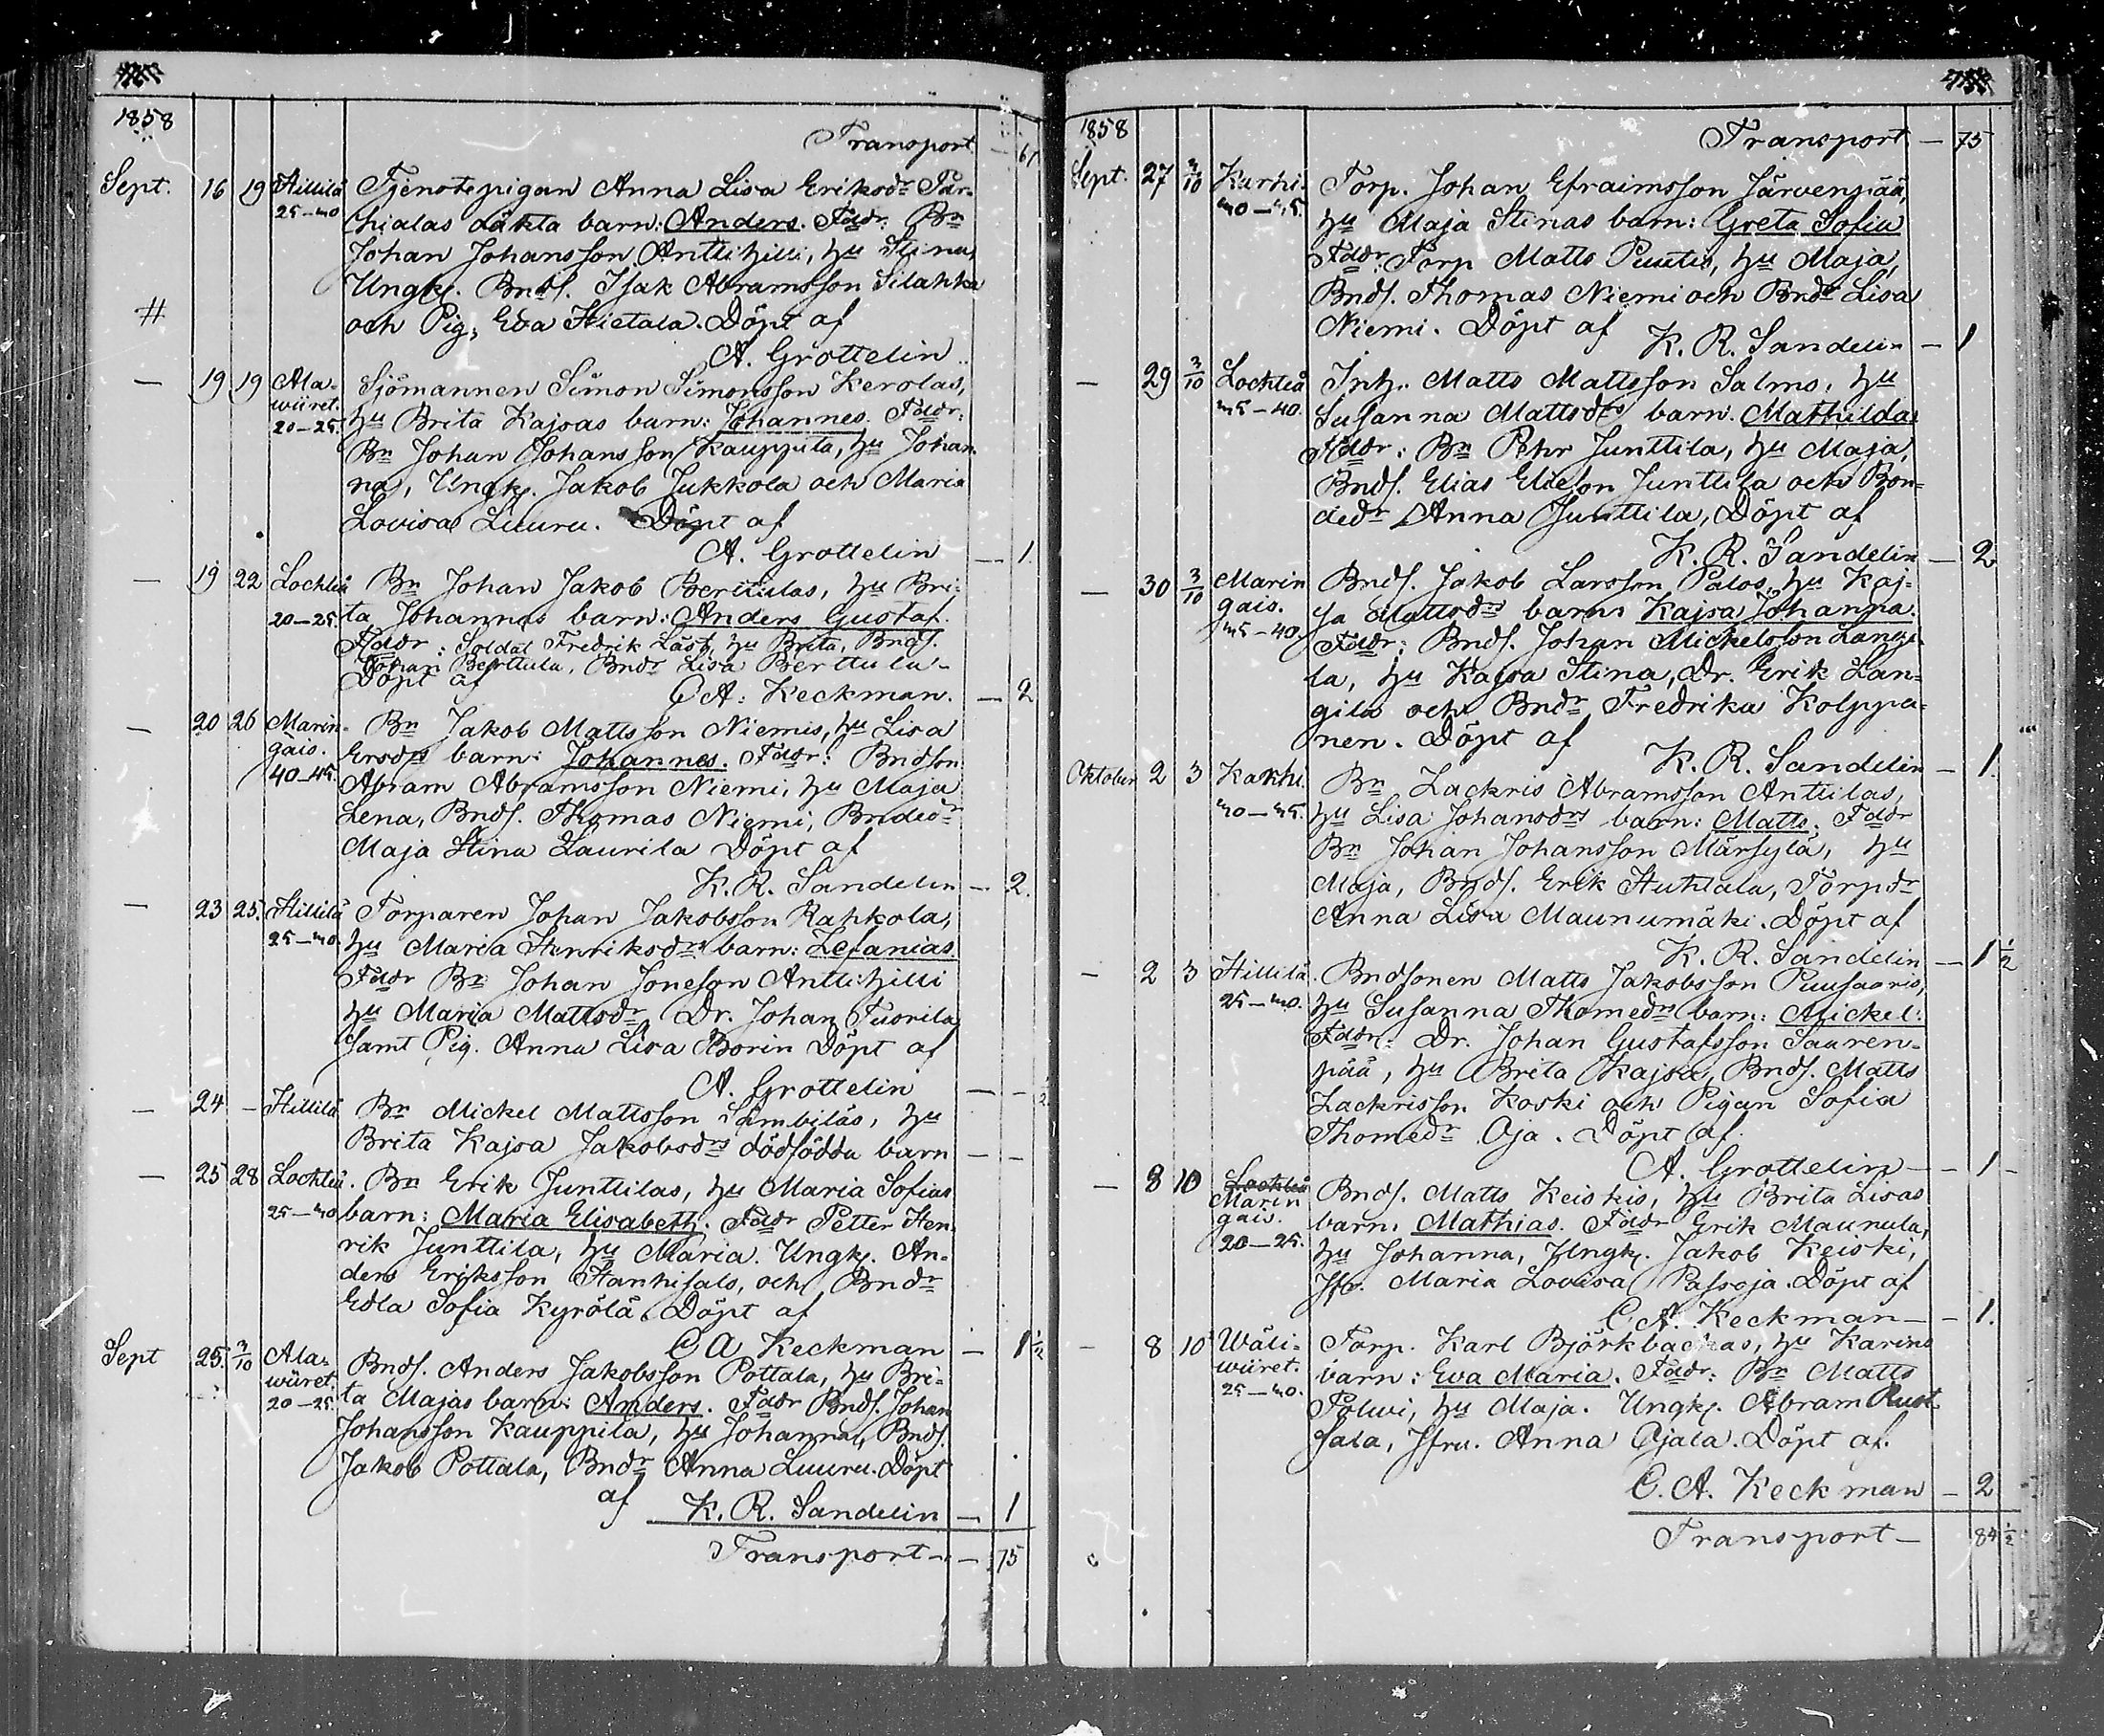 1858
Transport — 67
Sept. 16 19 Hillilä Tjenstepigan Anna Lisa Eriksdr Par-
25—30 hialas oäkta barn: Anders. Fadr: Bn
Johan Johansson Anttihilli, hu Stina,
Ungk. Bnds. Isak Abramsson Silahka
# och Pig. Eva Hietala. Döpt af
A. Grottelin
— 19 19 Ala- Sjömannen Simon Simonsson Kerolas,
wiiret. hu Brita Kajsas barn: Johannes. Fadr:
20—25. Bn Johan Johansson Kauppila, hu Johan-
na, Ungk. Jakob Jukkola och Maria
Lovisa Luuru. Döpt af
A. Grottelin — 1.
— 19 22 Lochteå Bn Johan Jakob Berttulas, hu Bri-
20—25. ta Johannas barn: Anders Gustaf.
Fadr: Soldat Fredrik Läst, hu Brita, Bnds.
Johan Berttula, Bndr Lisa Berttula.
Döpt af
C A. Keckman. — 2
— 20 26 Marin- Bn Jakob Mattsson Niemis, hu Lisa
gais. Ersdrs barn: Johannes. Fadr: Bndson
40—45. Abram Abramsson Niemi, hu Maja
Lena, Bnds. Thomas Niemi, Bndedr
Maja Stina Laurila Döpt af
K. R. Sandelin — 2.
— 23 25. Hillilä Torparen Johan Jakobsson Rahkola,
25—30. hu Maria Henriksdrs barn: Zefanias.
Fadr Bn Johan Joneson Anttihilli
hu Maria Mattsdr, Dr. Johan Tuorila
Samt Pig. Anna Lisa Borin Döpt af
A. Grottelin — —
— 24 — Hillilä Bn Mickel Mattsson Sämbiläs, hu
Brita Kajsa Jakobsdrs dödfödda barn — —
— 25 28 Lochteå. Bn Erik Junttilas, hu Maria Sofias
25—30 barn: Maria Elisabeth. Fadr Petter Hen-
rik Junttila, hu Maria. Ungk. An-
ders Eriksson Hanhisalo, och Bndr
Edla Sofia Kyrölä. Döpt af
C A Keckman — 1 1/2
Sept 25. 3/10 Ala- Bnds. Anders Jakobsson Pottala, hu Bri-
wiiret. ta Majas barn: Anders. Fadr Bnds. Johan
20—25. Johansson Kauppila, hu Johanna, Bnds.
Jakob Pottala, Bndr Anna Luuru. Döpt
af K. R. Sandelin — 1
Transport — 75
1858
Transport — 75
Sept. 27 3/10 Karhi. Torp. Johan Efraimsson Järvenpää,
30—35. hu Maja Stinas barn: Greta Sofia
Fadr: Torp Matts Puutio, hu Maja,
Bnds. Thomas Niemi och Bndr Lisa
Niemi. Döpt af
K. R. Sandelin — 1
— 29 3/10 Lochteå Inh. Matts Mattsson Salmo, hu
35—40. Susanna Mattsdrs barn. Mathilda.
Fadr: Bn Pehr Junttila, hu Maja,
Bnds. Elias Elieson Junttila och Bon-
dedr Anna Junttila, Döpt af
K. R. Sandelin — 2
— 30 3/10 Marin Bnds. Jakob Larsson Palos, hu Kaj-
gais. sa Mattsdrs barn: Kajsa Johanna.
35—40. Fadr: Bnds. Johan Mickelsson Langi-
la, hu Kajsa Stina, Dr. Erik Lan-
gila och Bndr Fredrika Kolppa-
nen. Döpt af
K. R. Sandelin — 1.
Oktober 2 3 Karhi. Bn Zackris Abramsson Anttilas,
30—35. hu Lisa Johansdrs barn: Matts. Fadr
Bn Johan Johansson Märsylä, hu
Maja, Bnds. Erik Huhtala, Torpdr
Anna Lisa Maunumäki. Döpt af
K. R. Sandelin — 1 1/2
— 2 3 Hillilä. Bndsonen Matts Jakobsson Puusaaris,
25—30. hu Susanna Thomedrs barn: Mickel:
Fadr: Dr. Johan Gustafsson Saaren-
pää, hu Brita Kajsa, Bnds. Matts
Zackrisson Koski och Pigan Sofia
Thomedr Oja. Döpt af.
A. Grottelin — 1 —
— 8 10 Lochteå Bnds. Matts Keiskis, hu Brita Lisas
Marin barn. Mathias. Fadr Erik Maunula,
gais. hu Johanna, Ungk. Jakob Keiski,
20—25. Jfr. Maria Lovisa Passoja. Döpt af
C. A. Keckman — 1.
— 8 10 Wäli- Torp. Karl Björkbackas, hu Karins
wiiret. barn: Eva Maria. Fadr: Bn Matts
25—30. Polwi, hu Maja. Ungk. Abram Rust-
sala, Jfru. Anna Ojala. Döpt af.
C. A. Keckman — 2
Transport — 84 1/2